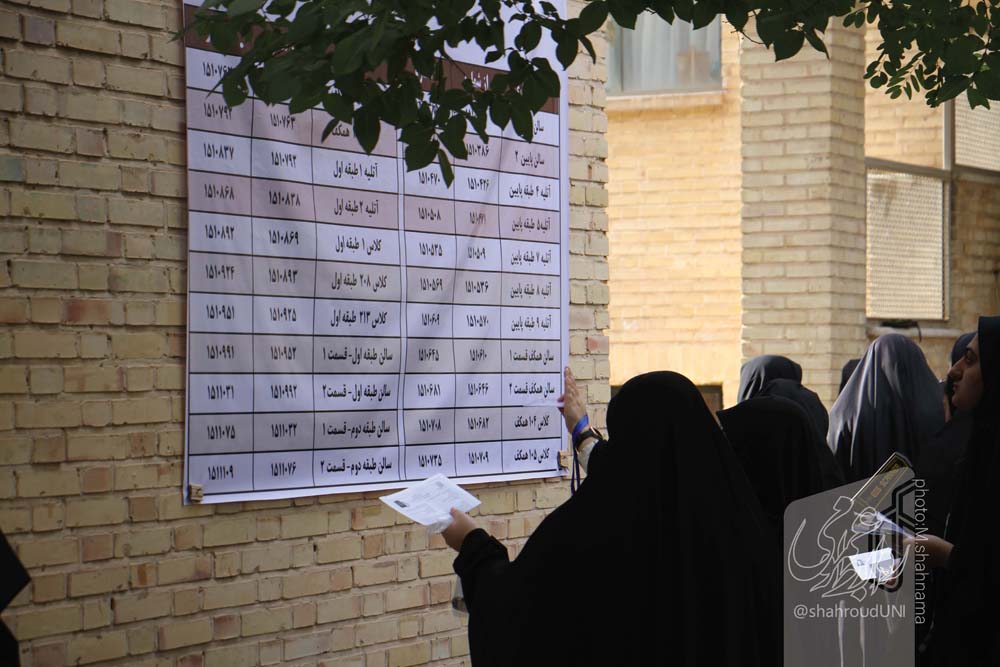 سالن
سالن پایین ۲ ۱۵۱۰۳۸۶ همکف ۱۵۱۰۷۶۳ ۱۵۱۰۷۹۲
آتلیه ۴ طبقه پایین ۱۵۱۰۴۲۶ ۱۵۱۰۴۷۰ آتلیه ۱ طبقه اول ۱۵۱۰۷۹۳ ۱۵۱۰۸۳۷
آتلیه ۵ طبقه پایین ۱۵۱۰۴۷۱ ۱۵۱۰۵۰۸ آتلیه ۲ طبقه اول ۱۵۱۰۸۳۸ ۱۵۱۰۸۶۸
آتلیه ۷ طبقه پایین ۱۵۱۰۵۰۹ ۱۵۱۰۵۳۵ کلاس ۱ طبقه اول ۱۵۱۰۸۶۹ ۱۵۱۰۸۹۲
آتلیه ۸ طبقه پایین ۱۵۱۰۵۳۶ ۱۵۱۰۵۶۹ کلاس ۲۰۸ طبقه اول ۱۵۱۰۸۹۳ ۱۵۱۰۹۲۴
آتلیه ۹ طبقه پایین ۱۵۱۰۵۷۰ ۱۵۱۰۶۰۹ کلاس ۲۱۳ طبقه اول ۱۵۱۰۹۲۵ ۱۵۱۰۹۵۱
سالن همکف قسمت ۱ ۱۵۱۰۶۱۰ ۱۵۱۰۶۴۵ سالن طبقه اول- قسمت ۱ ۱۵۱۰۹۵۲ ۱۵۱۰۹۹۱
سالن همکف قسمت ۲ ۱۵۱۰۶۴۶ ۱۵۱۰۶۸۱ سالن طبقه اول- قسمت۲ ۱۵۱۰۹۹۲ ۱۵۱۱۰۳۱
کلاس ۱۰۴ همکف ۱۵۱۰۶۸۲ ۱۵۱۰۷۰۸ سالن طبقه دوم- قسمت ۱ ۱۵۱۱۰۳۲ ۱۵۱۱۰۷۵
کلاس ۱۰۵ همکف ۱۵۱۰۷۰۹ ۱۵۱۰۷۳۵ سالن طبقه دوم- قسمت ۲ ۱۵۱۱۰۷۶ ۱۵۱۱۱۰۹
photo:M.shahnama
@shahroudUNI